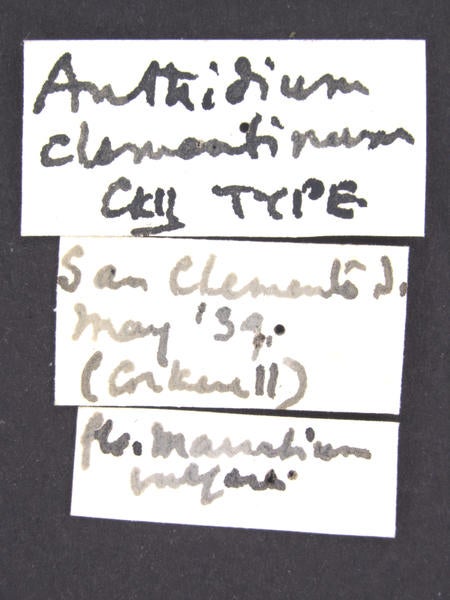 Anthidium
clementinum
Ckll TYPE
San Clemente I.
May '39.
(Cockerell)
fls. Marrubium
vulgare